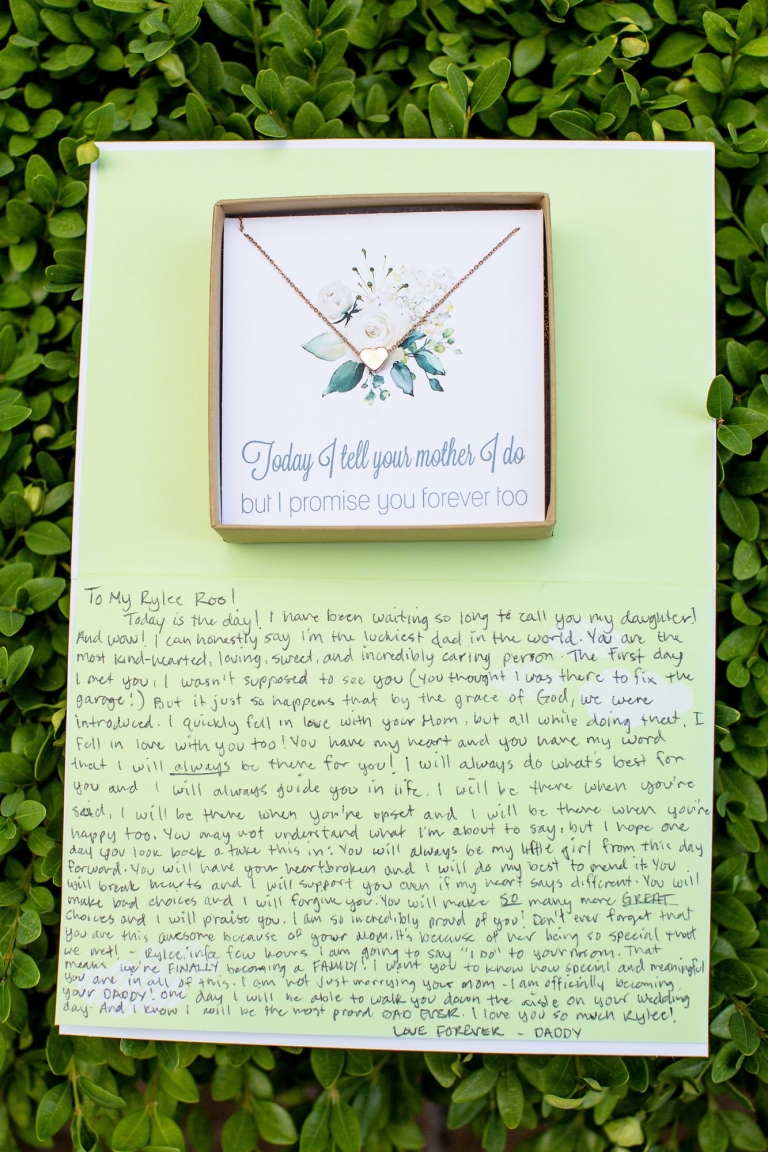 Today I tell your mother I do
but I promise you forever too
To My Rylee Roo!
Today is the day! I have been waiting so long to call you my daughter!
And wow! I can honestly say I'm the luckiest dad in the world. You are the
most kind-hearted, loving, sweet, and incredibly caring person. The first day
I met you, I wasn't supposed to see you (You thought I was there to fix the
garage!) But it just so happens that by the grace of God, we were
introduced. I quickly fell in love with your Mom, but all while doing that, I
fell in love with you too! You have my heart and you have my word
that I will always be there for you! I will always do what's best for
you and I will always guide you in life. I will be there when you're
sad, I will be there when you're upset and I will be there when you're
happy too. You may not understand what I'm about to say, but I hope one
day you look back a take this in: You will always be my little girl from this day
forward. You will have your heartbroken and I will do my best to mend it. You
will break hearts and I will support you even if my heart says different. You will
make bad choices and I will forgive you. You will make SO many more GREAT
choices and I will praise you. I am so incredibly proud of you! Don't ever forget that
you are this awesome because of your Mom. It's because of her being so special that
we met! - Rylee, in a few hours I am going to say "I DO" to your mom. That
means we're FINALLY becoming a FAMILY! I want you to know how special and meaningful
you are in all of this. I am not just marrying your mom - I am officially becoming
your DADDY! One day I will be able to walk you down the aisle on your wedding
day. And I know I will be the most proud DAD EVER. I love you so much Rylee!
LOVE FOREVER - DADDY